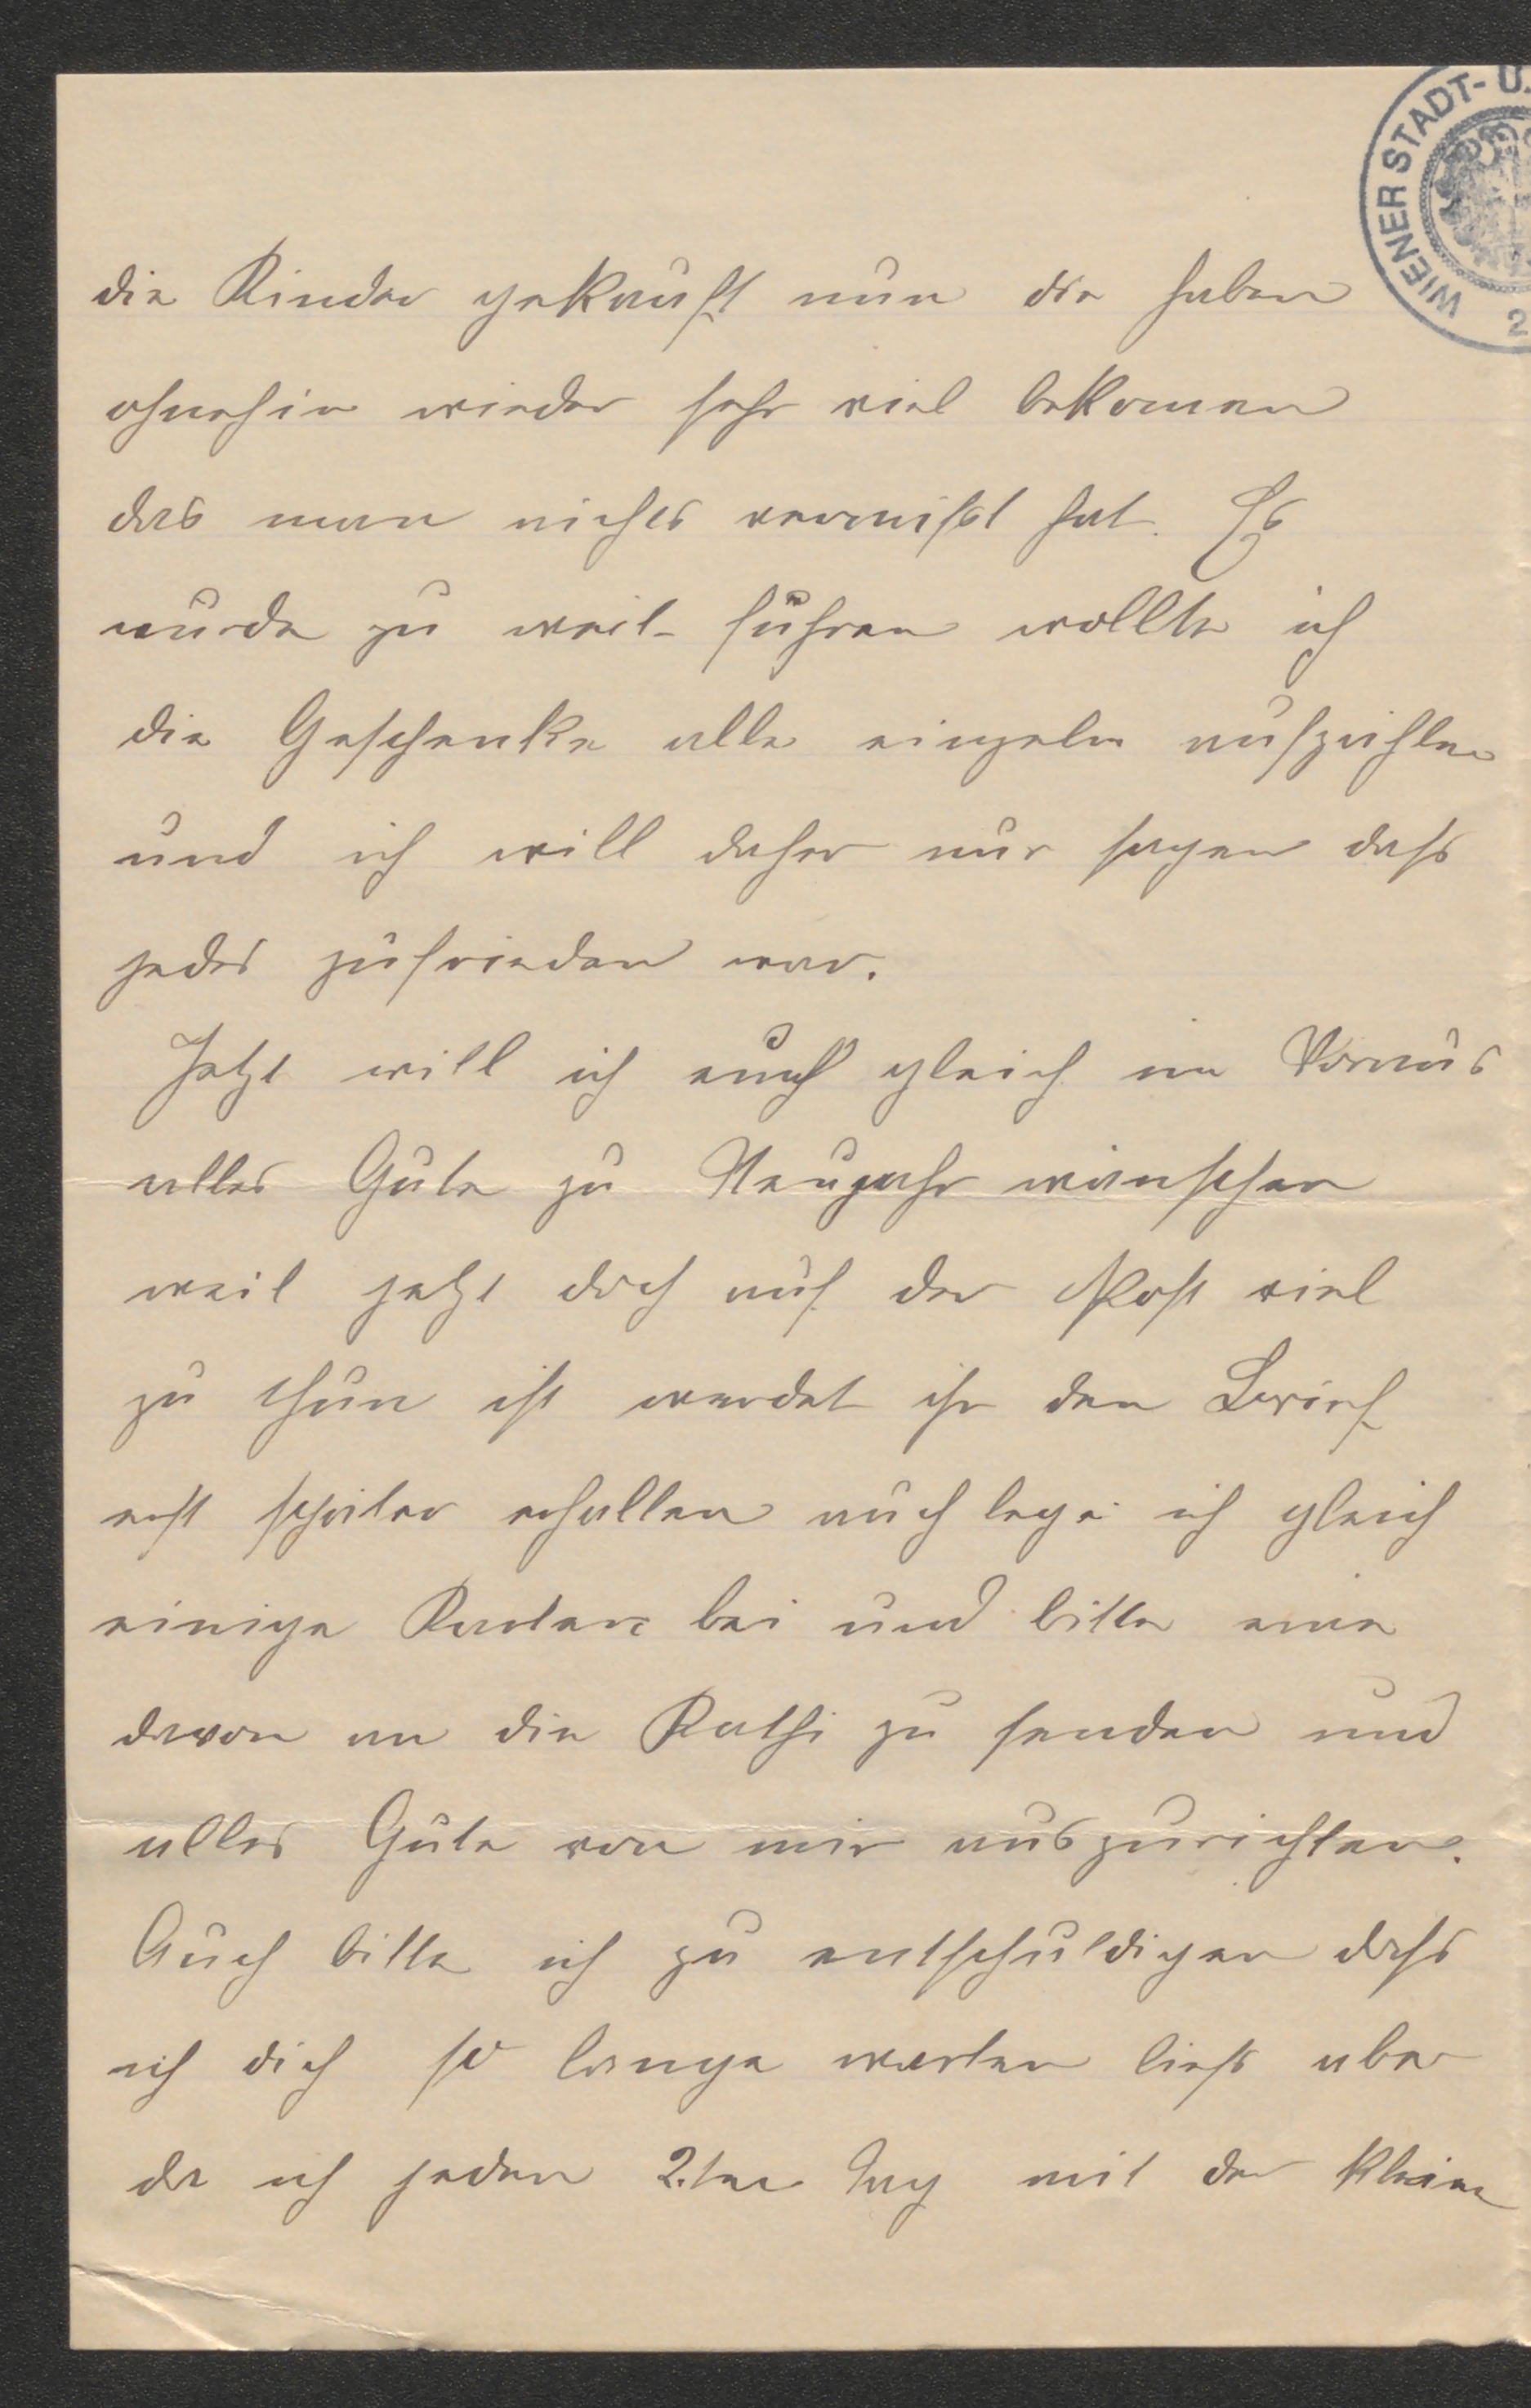 WIENER STADT- U.
2
die Kinder gekauft nun die haben
ohnehin wieder sehr viel bekomen
das man nichts vermißt hat. Es
wurde zu weit führen wollte ich
die Geschenke alle einzeln aufzählen
und ich will daher nur sagen daß
jedes zufrieden war.
Jetzt will ich euch gleich im Voraus
alles Gute zu Neujahr wünschen
weil jetzt doch auf der Post viel
zu thun ist werdet ihr den Brief
erst später erhalten auch lege ich gleich
einige Karten bei und bitte eine
davon an die Kathi zu senden und
alles Gute von mir auszurichten.
Auch bitte ich zu entschuldigen daß
ich dich so lange warten ließ aber
da ich jeden 2.ten Tag mit der Kleine